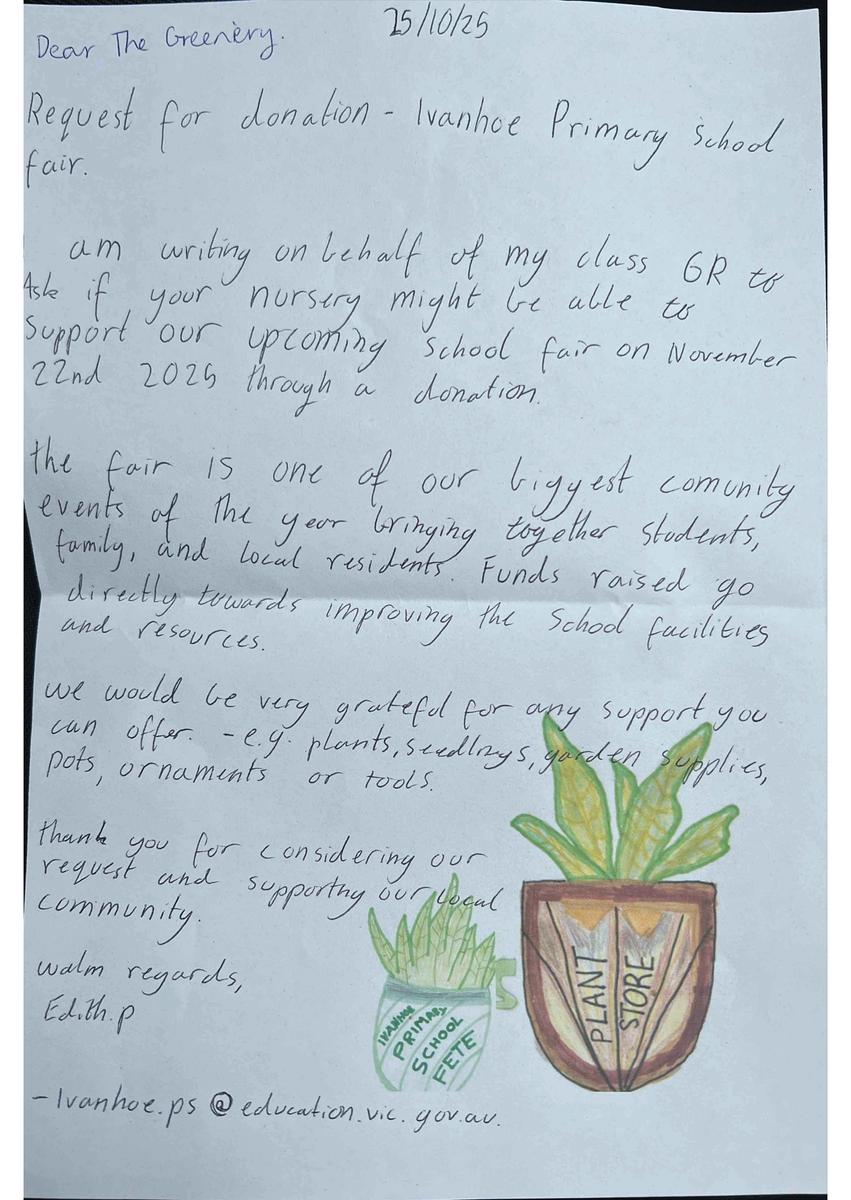 25/10/25
Dear The Greenery.
Request for donation - Ivanhoe Primary School
fair.
am writing on behalf of my class 6R to
Ask if your nursery might be able to
Support our upcoming School fair on November
22nd 2025 through a donation.
the fair is one of our biggest comunity
events of the year bringing together students,
family, and local residents. Funds raised go
directly towards improving the School facilities
and resources.
we would be very grateful for any support you
can offer. - e.g. plants, seedlings, garden supplies,
pots, ornaments or tools.
thank you for considering our
request and supporting our local
community.
walm regards,
Edith.p
PLANT
STORE
IVANHOE
PRIMARY
SCHOOL
FETE
- Ivanhoe.ps @ education.vic.gov.au.